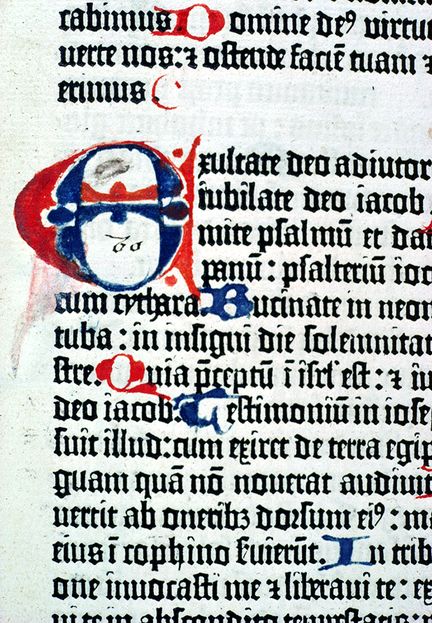 rabimus Domine de⁹ virtu
uerte nos: ⁊ ostende faciē tuam ⁊
erimus
Exultate deo adiutor
iubilate deo iacob
mite psalmū et da
panū: psalteriū ioc
cum cythara Bucinate in neom
tuba: in insigni die solemnitat
stre. Quia p̄ceptū ī isrl̄ est: ⁊ iu
deo iacob Testimoniū in iose
suit illud: cum exiret de terra egip
guam quā nō nouerat audiuit
uertit ab oneribꝫ dorsum ei⁹: m
eius ī cophino seruierūt. In trib
one inuocasti me ⁊ liberaui te: ex
ui te in abscondito tempestatis: